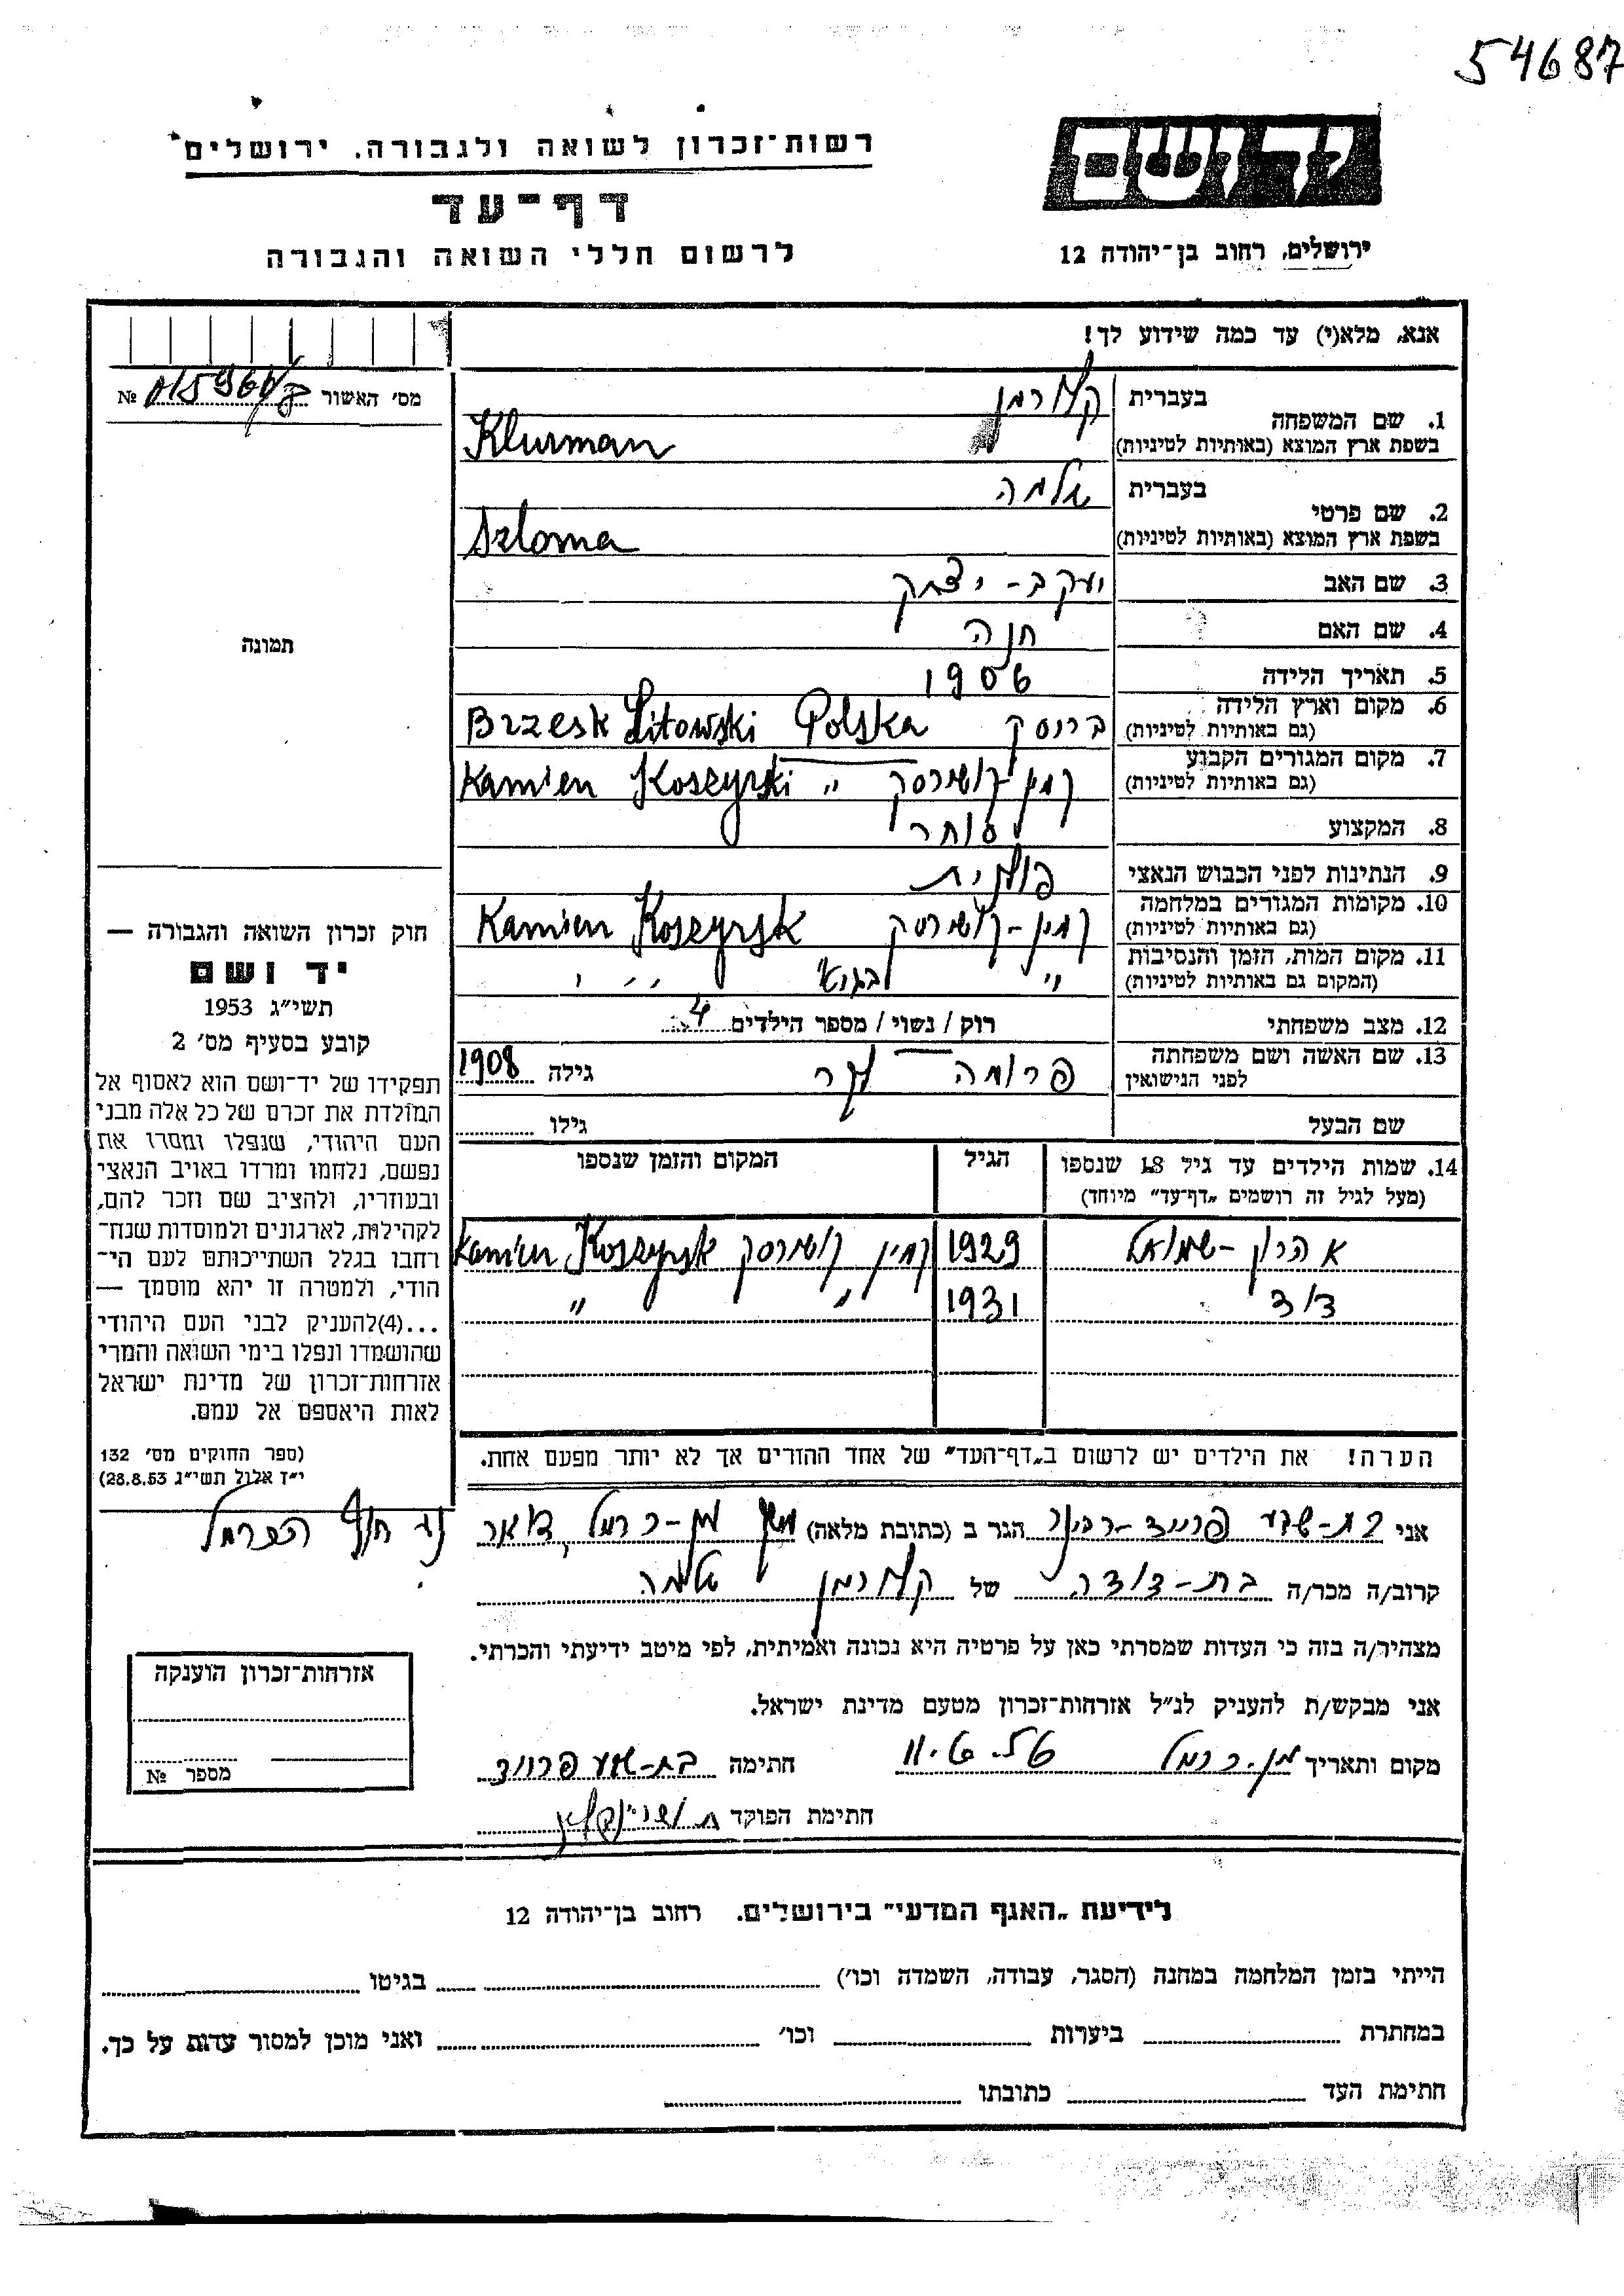 54687
יד ושם
רשות־זכרון לשואה ולגבורה. ירושלים
דף־עד
ירושלים, רחוב בן־יהודה 12
לרשום חללי השואה והגבורה
אנא, מלא(י) עד כמה שידוע לך!
מס׳ האשור №
1. שם המשפחה בעברית קלורמן
בשפת ארץ המוצא (באותיות לטיניות) Klurman
2. שם פרטי בעברית שלמה
בשפת ארץ המוצא (באותיות לטיניות) Szloma
3. שם האב יעקב - יצחק
4. שם האם חנה
5. תאריך הלידה 1906
6. מקום וארץ הלידה (גם באותיות לטיניות) בריסק Brzesk Litowski Polska
7. מקום המגורים הקבוע (גם באותיות לטיניות) קמין-קושירסק " Kamien Koszyrski
8. המקצוע סוחר
9. הנתינות לפני הכבוש הנאצי פולנית
10. מקומות המגורים במלחמה (גם באותיות לטיניות) קמין-קושירסק Kamien Koszyrsk
11. מקום המות, הזמן והנסיבות (המקום גם באותיות לטיניות) "
12. מצב משפחתי רוק / נשוי / מספר הילדים 4
13. שם האשה ושם משפחתה לפני הנישואין פרומה גילה 1908
שם הבעל גילו
14. שמות הילדים עד גיל 18 שנספו (מעל לגיל זה רושמים „דף־עד״ מיוחד) הגיל המקום והזמן שנספו
אהרון - שמואל 1929 קמין קושירסק Kamien Koszyrsk
דוד 1931 " "
הערה! את הילדים יש לרשום ב„דף־העד״ של אחד ההורים אך לא יותר מפעם אחת.
תמונה
חוק זכרון השואה והגבורה —
יד ושם
תשי״ג 1953
קובע בסעיף מס׳ 2
תפקידו של יד־ושם הוא לאסוף אל
המולדת את זכרם של כל אלה מבני
העם היהודי, שנפלו ומסרו את
נפשם, נלחמו ומרדו באויב הנאצי
ובעוזריו, ולהציב שם וזכר להם,
לקהילות, לארגונים ולמוסדות שנח־
רחבו בגלל השתייכותם לעם הי־
הודי, ולמטרה זו יהא מוסמך —
...(4)להעניק לבני העם היהודי
שהושמדו ונפלו בימי השואה והמרי
אזרחות־זכרון של מדינת ישראל
לאות היאספם אל עמם.
(ספר החוקים מס׳ 132
י״ז אלול תשי״ג 28.8.53)
אני בת-שבע פרויד הגר ב (כתובת מלאה) דואר נע חוף הכרמל
קרוב/ה מכר/ה בת-דודה של קלורמן שלמה
מצהיר/ה בזה כי העדות שמסרתי כאן על פרטיה היא נכונה ואמיתית, לפי מיטב ידיעתי והכרתי.
אני מבקש/ת להעניק לנ״ל אזרחות־זכרון מטעם מדינת ישראל.
מקום ותאריך חתימה בת-שבע פרויד
חתימת הפוקד
אזרחות־זכרון הוענקה
מספר №
לידיעת „האגף המדעי״ בירושלים. רחוב בן־יהודה 12
הייתי בזמן המלחמה במחנה (הסגר, עבודה, השמדה וכו׳) בגיטו
במחתרת ביערות וכו׳ ואני מוכן למסור עדות על כך.
חתימת העד כתובתו